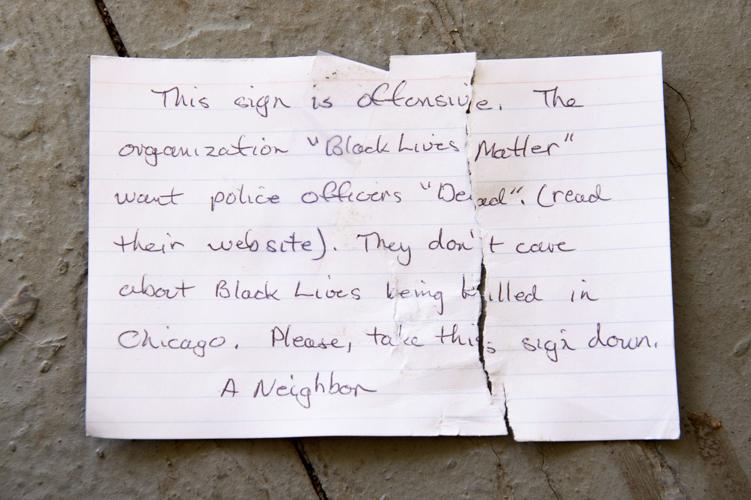 This sign is offensive. The
organization "Black Lives Matter"
want police officers "Dead". (read
their website). They don't care
about Black Lives being killed in
Chicago. Please, take this sign down.
A Neighbor